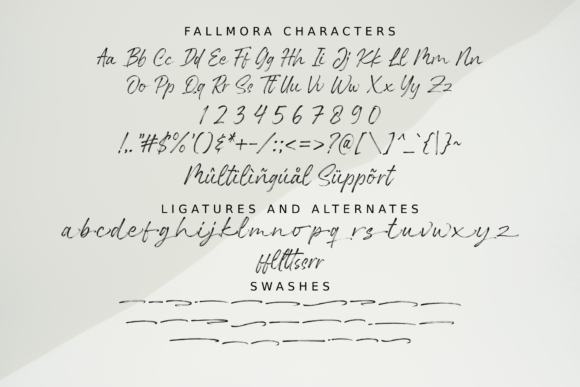 FALLMORA CHARACTERS
Aa Bb Cc Dd Ee Ff Gg Hh Ii Jj Kk Ll Mm Nn
Oo Pp Qq Rr Ss Tt Uu Vv Ww Xx Yy Zz
1 2 3 4 5 6 7 8 9 0
!,."#$%'()&*+-/:;<=>?@[\]^_`{|}~
Mûltilïñgúål Süppõrt
LIGATURES AND ALTERNATES
a b c d e f g h i j k l m n o p q r s t u v w x y z
ffllttssrr
SWASHES